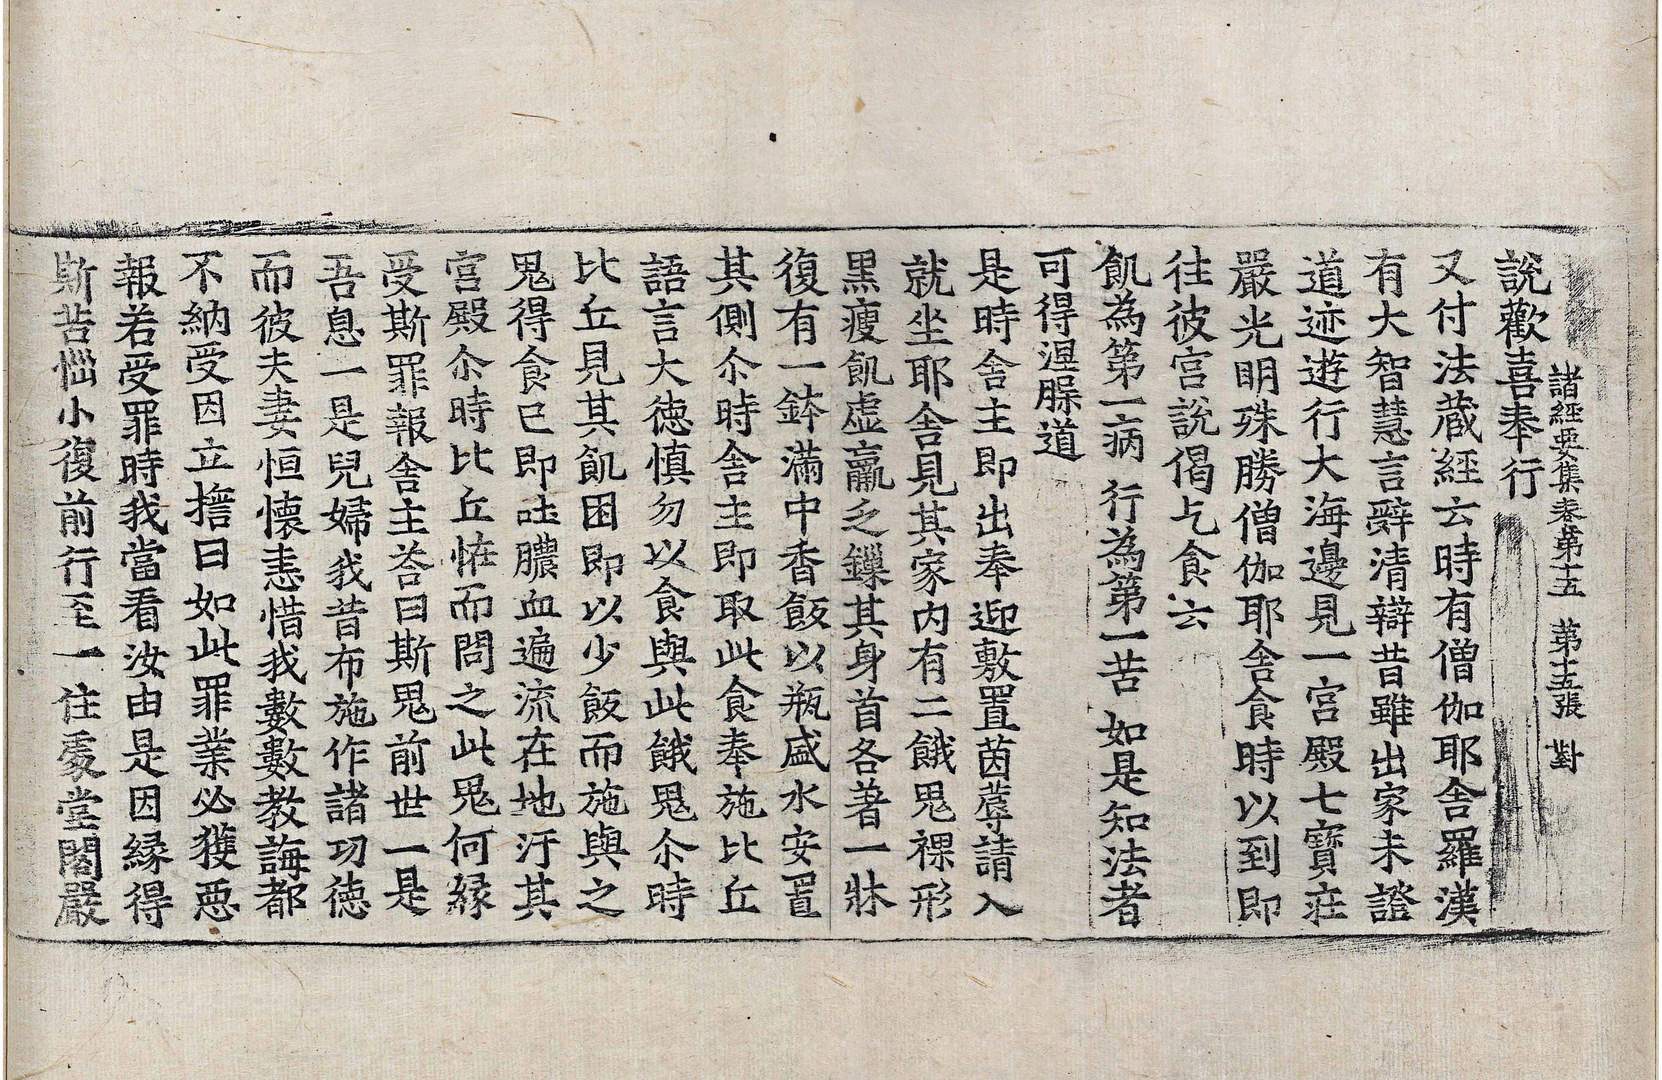 諸經要集卷第十五　第十五張　對
說歡喜奉行
又付法藏經云時有僧伽耶舍羅漢
有大智慧言辭清辯昔雖出家未證
道迹遊行大海邊見一宮殿七寶莊
嚴光明殊勝僧伽耶舍食時以到即
往彼宮說偈乞食云
飢為第一病　行為第一苦　如是知法者
可得涅槃道
是時舍主即出奉迎敷置茵蓐請入
就坐耶舍見其家內有二餓鬼裸形
黑瘦飢虛羸乏鏁其身首各著一牀
復有一鉢滿中香飯以瓶盛水安置
其側尒時舍主即取此食奉施比丘
語言大德慎勿以食與此餓鬼尒時
比丘見其飢困即以少飯而施與之
鬼得食已即吐膿血遍流在地汙其
宮殿尒時比丘恠而問之此鬼何緣
受斯罪報舍主荅曰斯鬼前世一是
吾息一是兒婦我昔布施作諸功德
而彼夫妻恒懷恚惜我數數教誨都
不納受因立擔曰如此罪業必獲惡
報若受罪時我當看汝由是因緣得
斯苦惱小復前行至一住處堂閣嚴